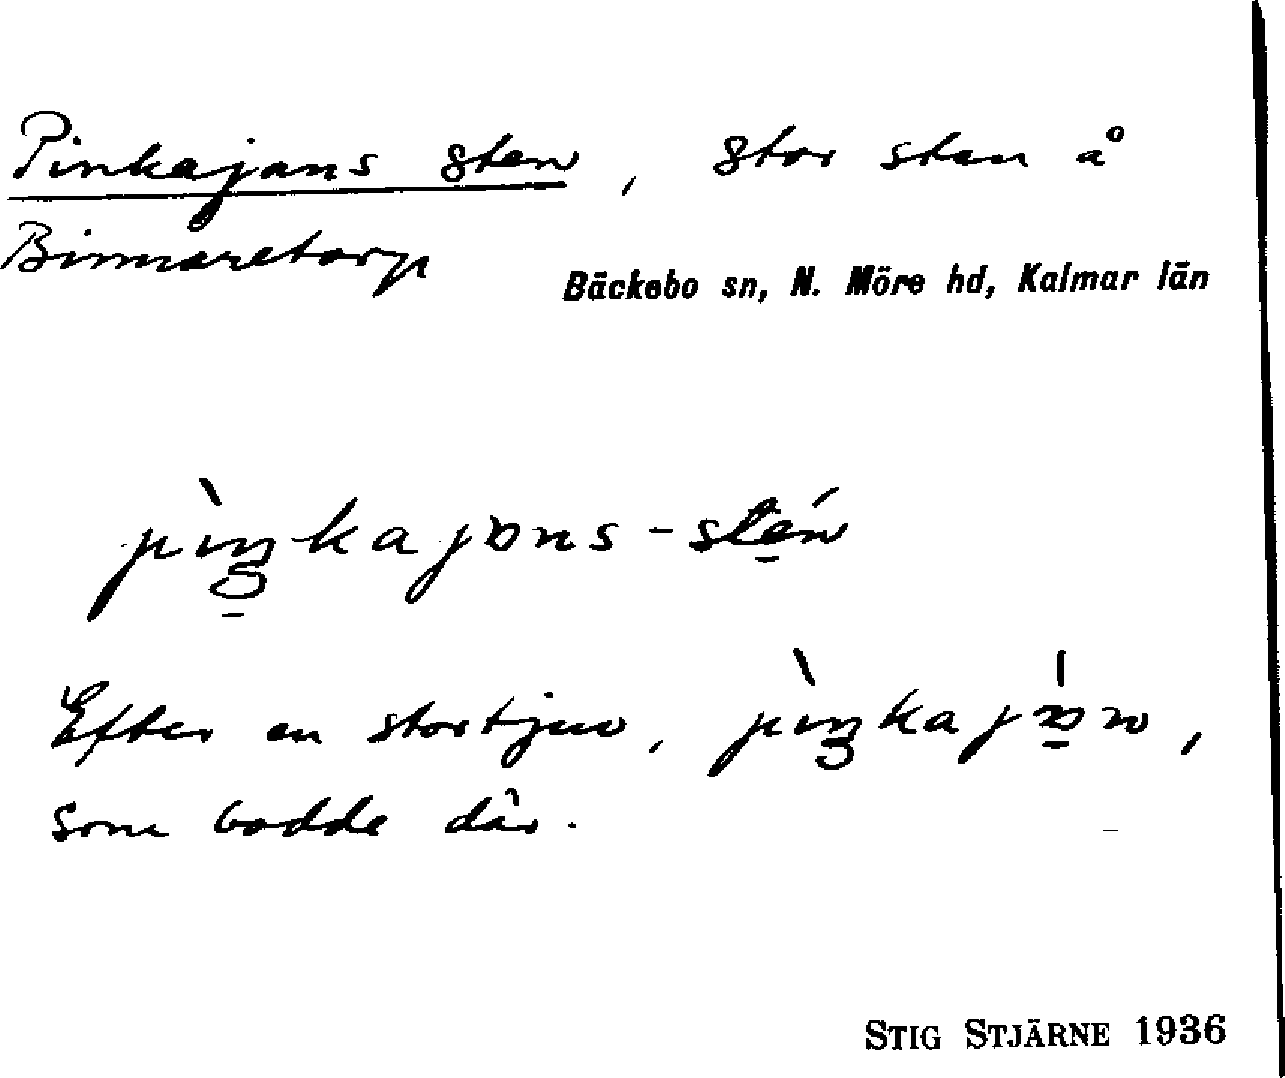 Pinkajans sten, stor sten å
Binnaretorp
Bäckebo sn, N. Möre hd, Kalmar län
pìŋkajɒns-stén
Efter en stortjuv, pìŋkajɒ́n,
som bodde där.
STIG STJÄRNE 1936